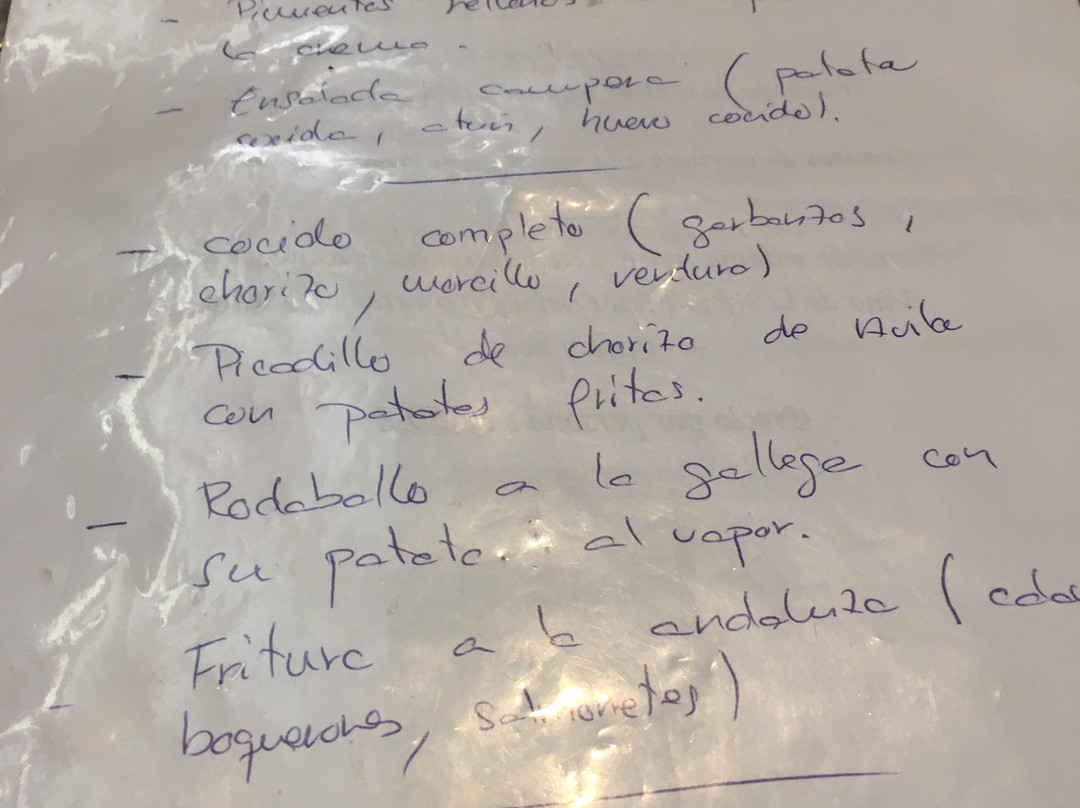 - Pimientos rellenos
la crema.
- Ensalada campera (patata
cocida, atun, huevo cocido).
- cocido completo (garbanzos,
chorizo, morcillo, verdura)
- Picadillo de chorizo de Avila
con patatas fritas.
- Rodaballo a la gallega con
su patata. al vapor.
- Fritura a la andaluza (
boquerones, salmonetes)